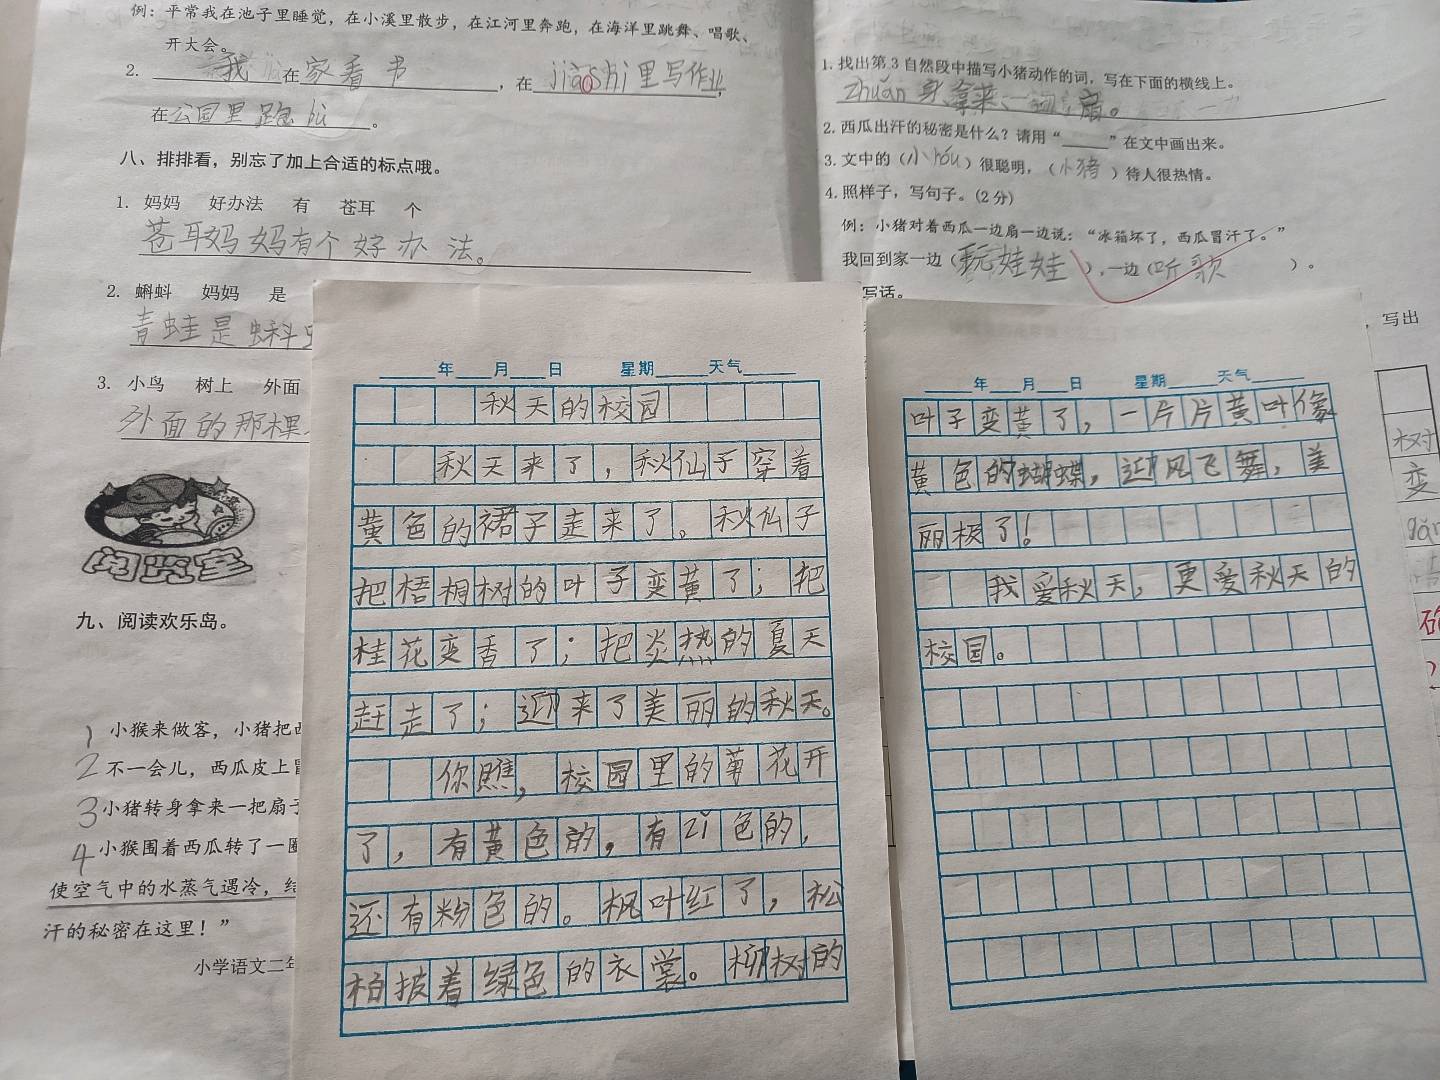 例：平常我在池子里睡觉，在小溪里散步，在江河里奔跑，在海洋里跳舞、唱歌、
开大会。
2. 我在家看书，在jiàoshì里写作业，
在公园里跑bù。
八、排排看，别忘了加上合适的标点哦。
1. 妈妈 好办法 有 苍耳 个
苍耳妈妈有个好办法。
2. 蝌蚪 妈妈 是
青蛙是蝌
3. 小鸟 树上 外面
外面的那棵
阅览室
九、阅读欢乐岛。
1 小猴来做客，小猪把西
2 不一会儿，西瓜皮上冒
3 小猪转身拿来一把扇子
4 小猴围着西瓜转了一圈
使空气中的水蒸气遇冷，结
汗的秘密在这里！”
小学语文二年
1. 找出第3自然段中描写小猪动作的词，写在下面的横线上。
zhuǎn身、拿来、扇。
2. 西瓜出汗的秘密是什么？请用“____”在文中画出来。
3. 文中的（小hóu）很聪明，（小猪）待人很热情。
4. 照样子，写句子。(2分)
例：小猪对着西瓜一边扇一边说：“冰箱坏了，西瓜冒汗了。”
我回到家一边（玩娃娃），一边（听歌）。
写话。
，写出
树
变
年 月 日 星期 天气
秋天的校园
秋天来了，秋仙子穿着
黄色的裙子走来了。秋仙子
把梧桐树的叶子变黄了；把
桂花变香了；把炎热的夏天
赶走了；迎来了美丽的秋天。
你瞧，校园里的菊花开
了，有黄色的，有zǐ色的，
还有粉色的。枫叶红了，松
柏披着绿色的衣裳。柳树的
年 月 日 星期 天气
叶子变黄了，一片片黄叶像
黄色的蝴蝶，迎风飞舞，美
丽极了！
我爱秋天，更爱秋天的
校园。